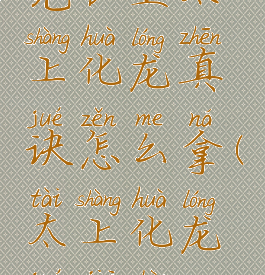 shàng huà lóng zhēn
上化龙真
jué zěn me ná
诀怎么拿(
tài shàng huà lóng
太上化龙